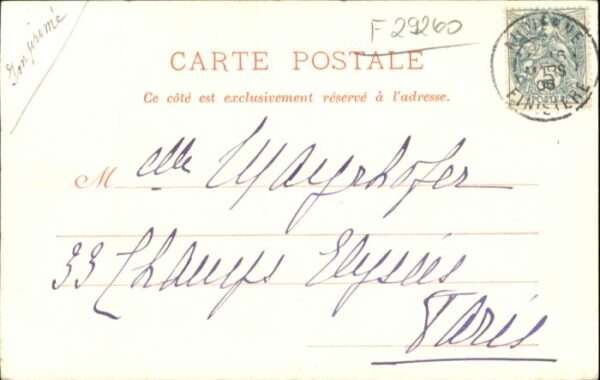 Imprimé
F 29260
CARTE POSTALE
Ce côté est exclusivement réservé à l'adresse.
Melle Mayrhofer
33 Champs Elysées
Paris
MARS
05
FINISTERE